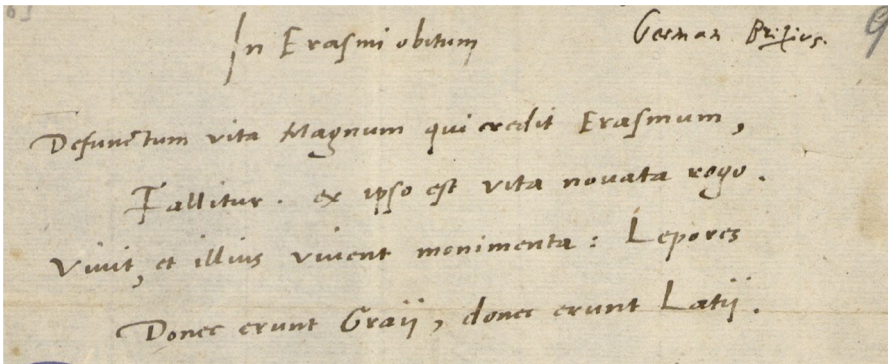 In Erasmi obitum
German Brixius.
9
Defunctum vita Magnum qui credit Erasmum,
Fallitur. ex ipso est vita novata rogo.
Vivit, et illius vivent monimenta: Lepores
Donec erunt Graij, donec erunt Latij.